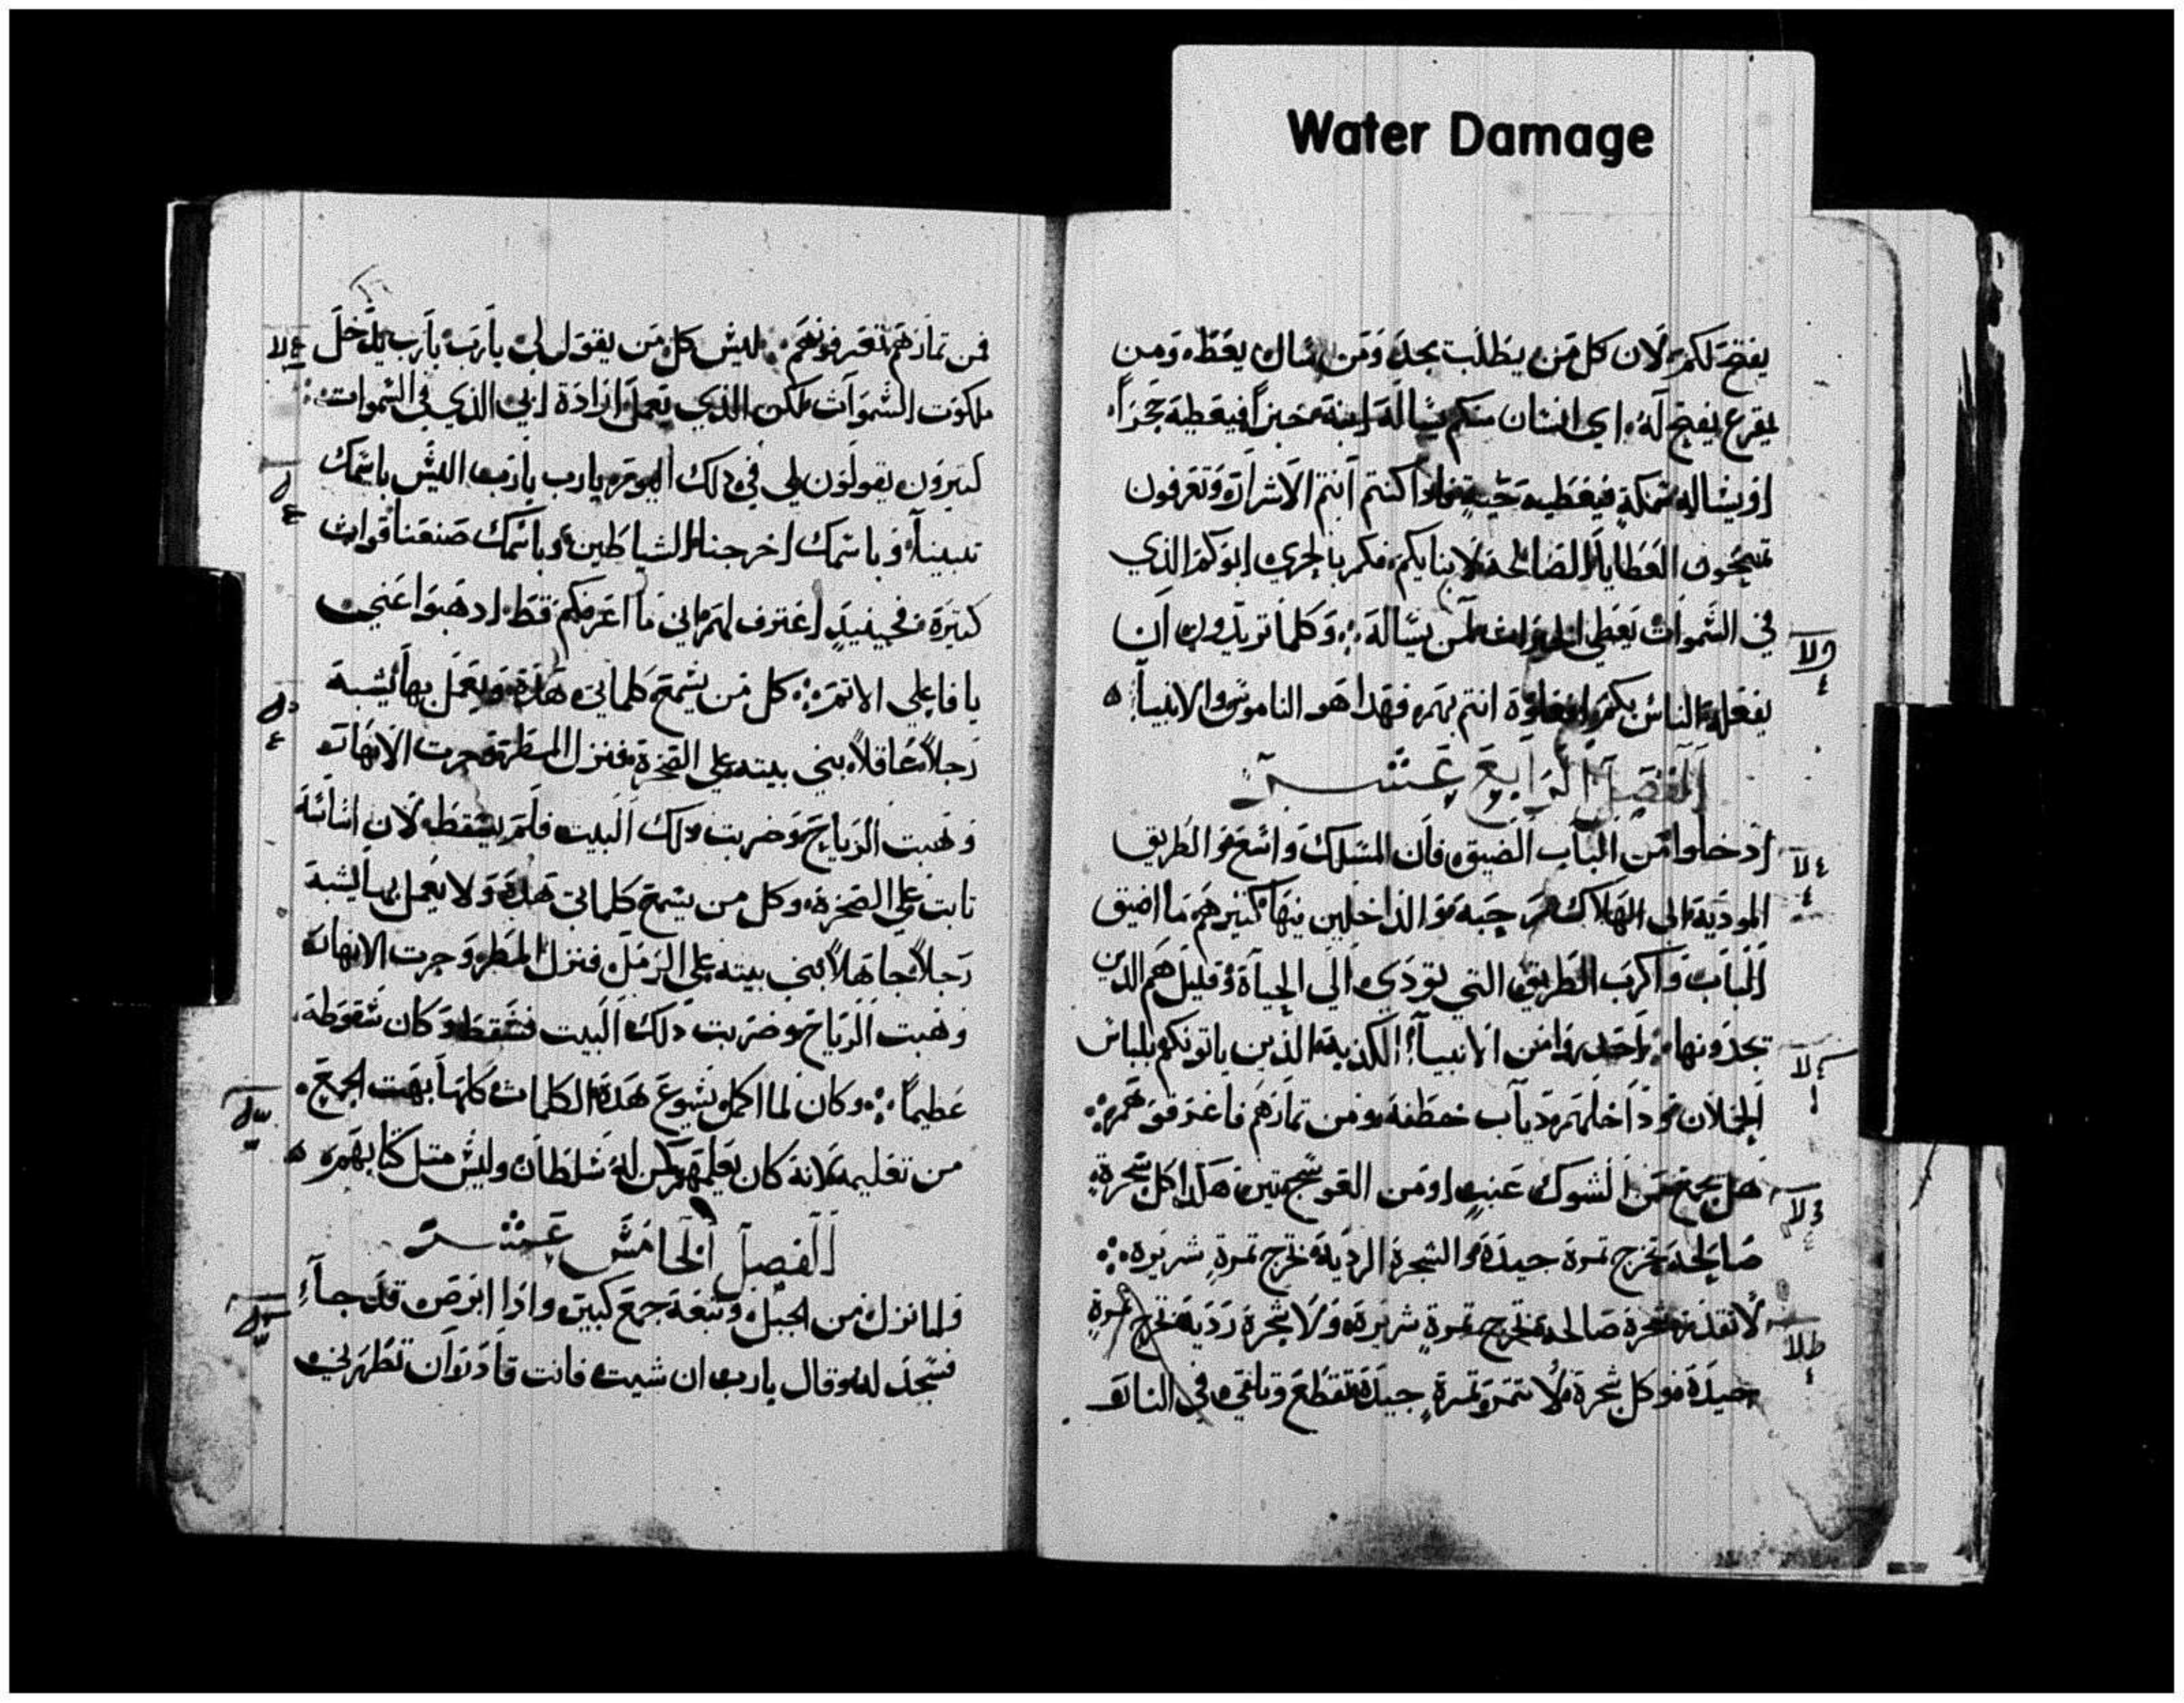 Water Damage
يفتح لكم لان كل من يطلب يجد ومن سال يعطه ومن
يقرع يفتح له اي انسان منكم يساله ابنه خبزاً فيعطيه حجراً
او يساله سمكةٍ فيعطيه حيةٍ فاذا كنتم انتم الاشرار وتعرفون
تمنحون العطايا الصالحة لابنايكم فكم بالحري ابوكم الذي
في السموات يعطي الخيرات لمن يساله وكلما تريدون ان
يفعله الناس بكم افعلوه انتم بهم فهدا هو الناموس والانبيآ
الفصل الرابع عشر
ادخلوا من الباب الضيق فان المسلك واسع والطريق
الموديه الى الهلاك رحبه والداخلين فيها كتير هم ما اضيق
الباب واكرب الطريق التي تودي الى الحياة وقليل هم الدين
يجدونها احدروا من الانبيآ الكدبه الذين ياتونكم بلباس
الحملان وداخلهم دياب خطفه ومن تمارهم فاعرفوهم
هل يجمع من الشوك عنبٍ او من العوسج تين هكدا كل شجرةٍ
صالحه تخرج تمرة جيدة والشجرة الرديه تخرج تمرةٍ شريره
لا تقدر شجرة صالحه تخرج تمرةٍ شريرة ولا شجرة رديه تخرج تمرةٍ
جيدة وكل شجرة لا تتمر تمرةٍ جيدة تقطع وتلقي في النار
فمن تمارهم تعرفونهم ليس كل من يقول لي يارب يارب يدخل
ملكوت السموات لكن الذي يعمل ارادة ابي الذي في السموات
كتيرون يقولون لي في دلك اليوم يارب يارب اليس باسمك
تنبينآ وباسمك اخرجنا الشياطين وباسمك صنعنا قوات
كتيرة فحينيدٍ اعترف لهم اني ما اعرفكم قط ادهبوا عني
يا فاعلي الاتم كل من يسمع كلماتي هده ويعمل بها يشبه
رجلاً عاقلاً بني بيته علي الصخرة فنزل المطر وجرت الانهار
وهبت الرياح وضربت دلك البيت فلم يسقط لان اساسه
تابت علي الصخرة وكل من يسمع كلماتي هده ولا يعمل بها يشبه
رجلاً جاهلاً بني بيته علي الرمل فنزل المطر وجرت الانهار
وهبت الرياح وضربت دلك البيت فسقط وكان سقوطه
عظيماً وكان لما اكمل يسوع هده الكلمات كلها بهت الجمع
من تعليمه لانه كان يعلمهم كمن له سلطان وليس متل كتابهم
الفصل الخامس عشر
ولما نزل من الجبل وتبعه جمع كبير واذا ابرص قد جآء
فسجد له وقال يارب ان شيت فانت قادر ان تطهرني